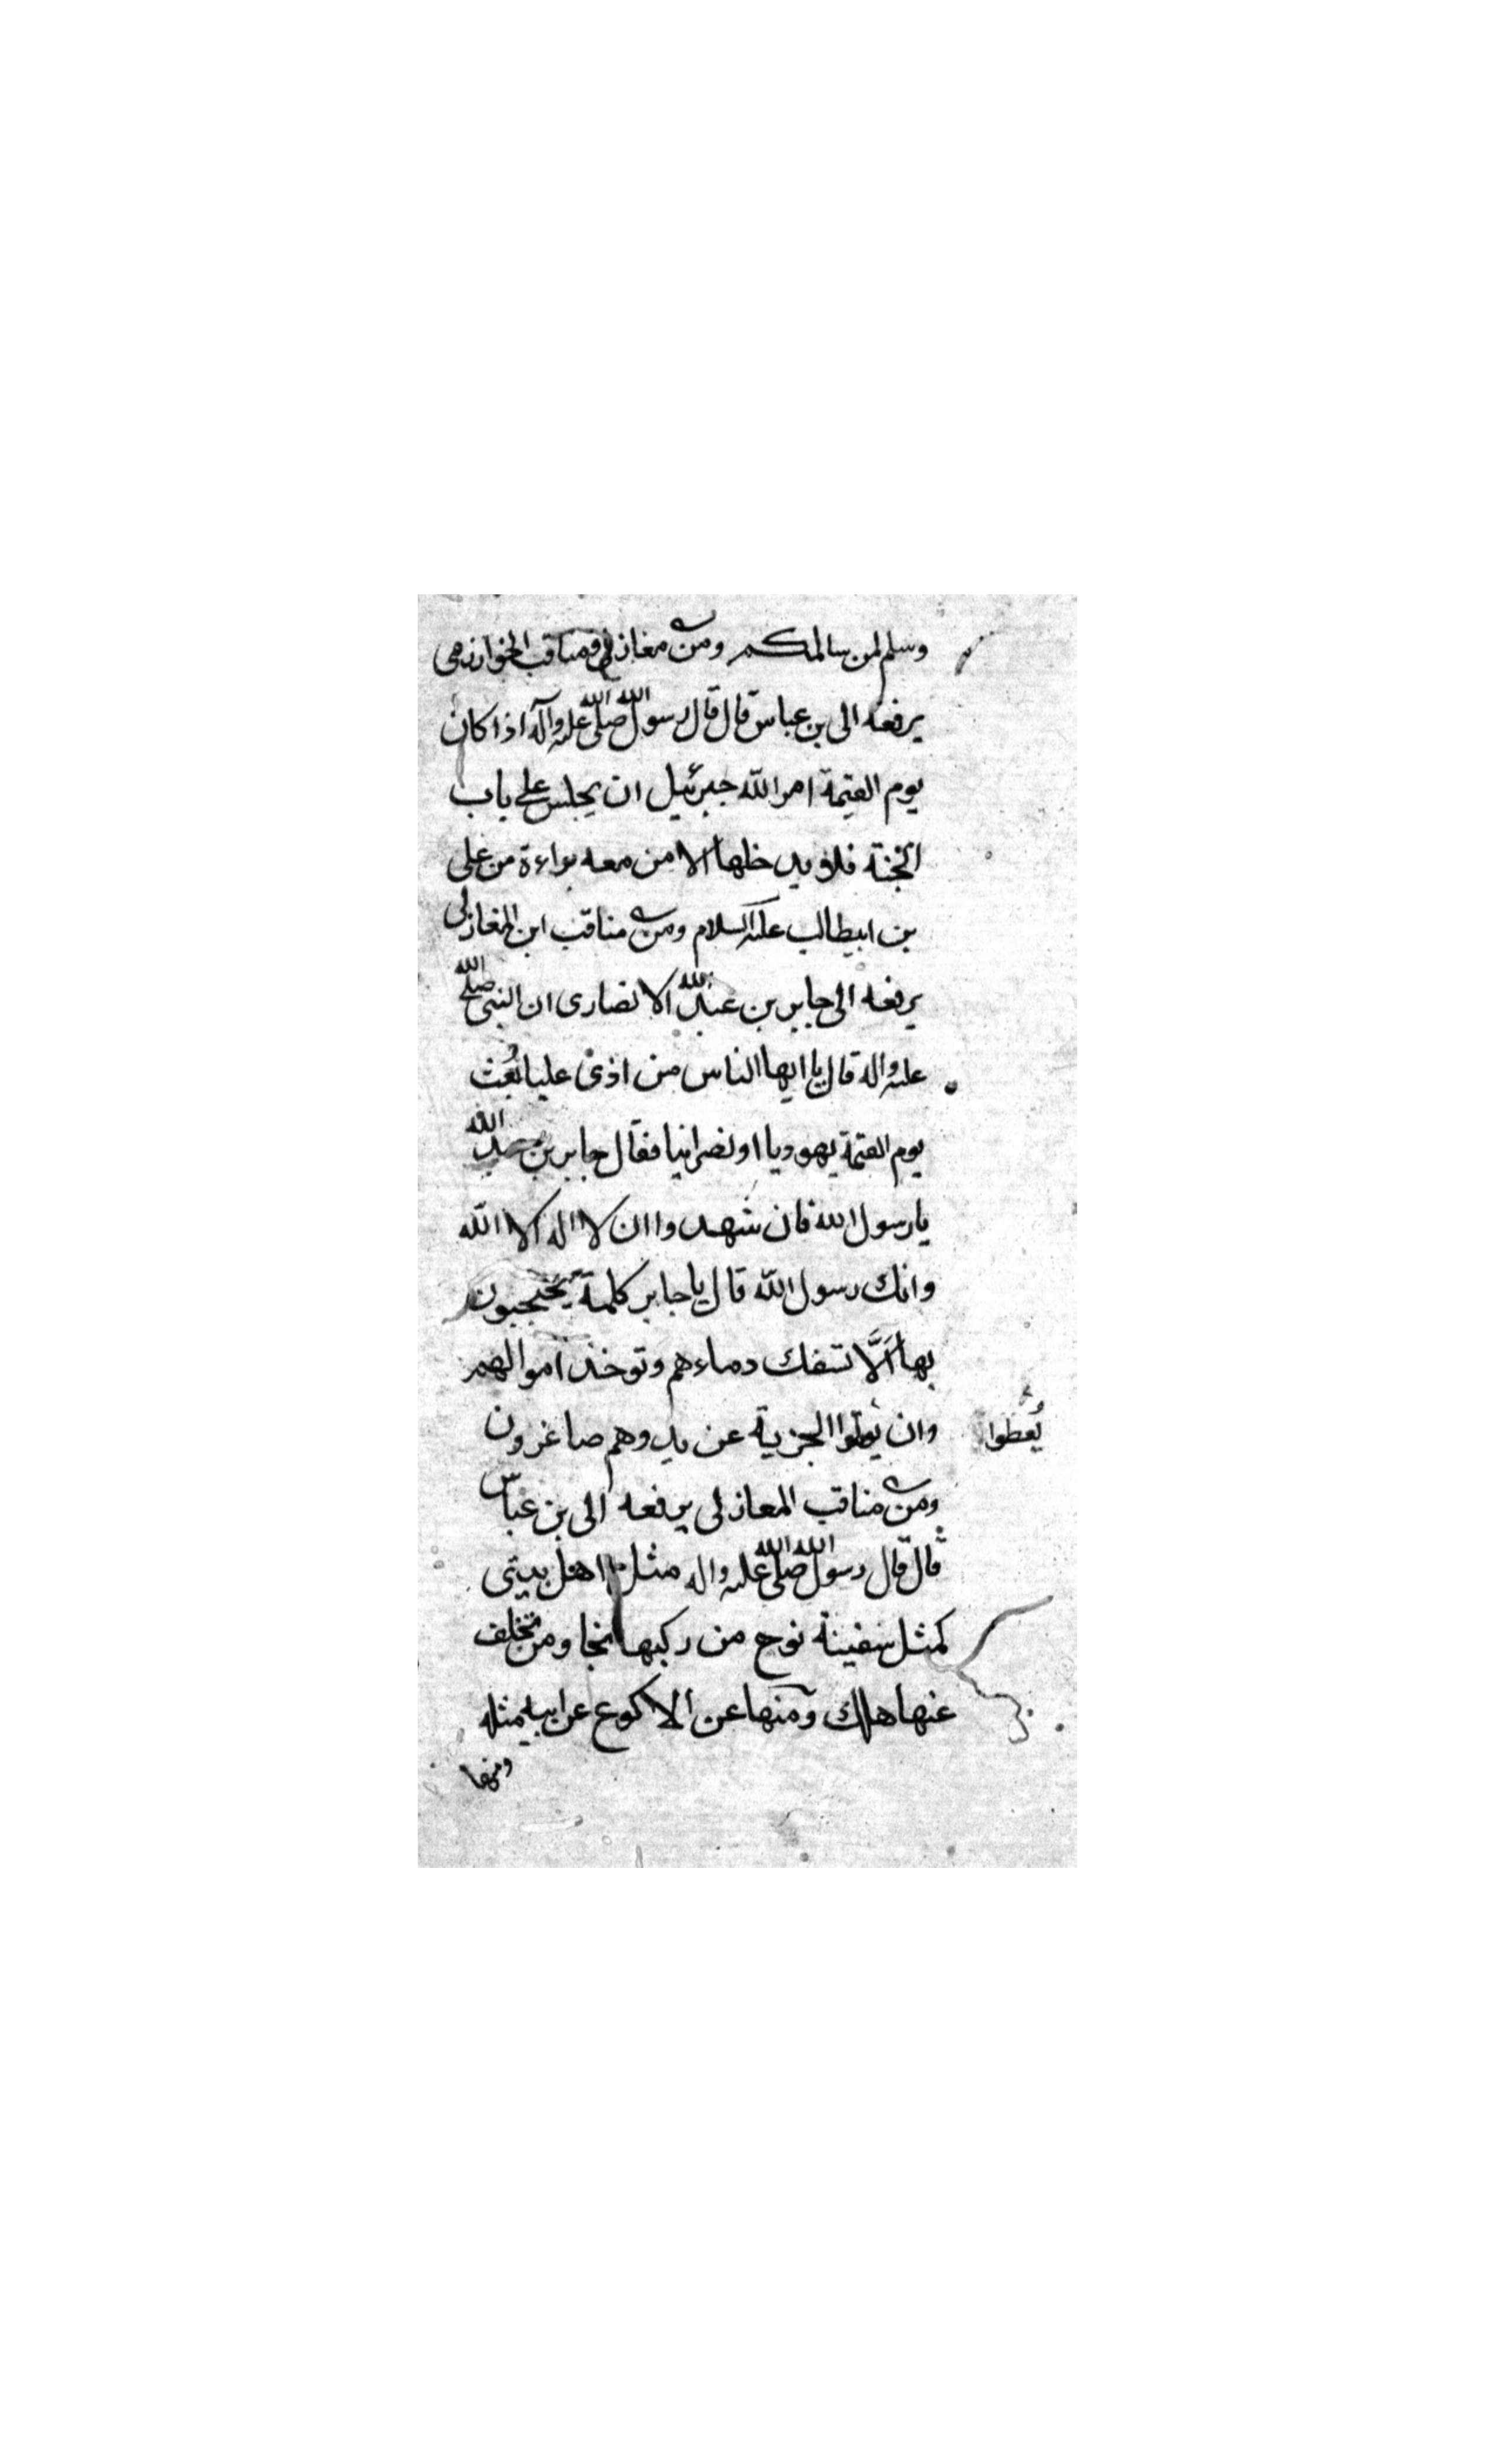 وسلم لمن سالمكم ومن مغازلي ومناقب الخوارزمى
يرفعه الى بن عباس قال قال رسول الله صلى الله عليه وآله اذا كان
يوم القيمة امر الله جبرئيل ان يجلس على باب
الجنة فلا يدخلها الا من معه براءة من على
بن ابيطالب عليه السلام ومن مناقب ابن المغازلى
يرفعه الى جابر بن عبد الله الانصارى ان النبى صلى الله
عليه واله قال يا ايها الناس من اذى عليا بُعث
يوم القيمة يهوديا او نصرانيا فقال جابر بن عبد الله
يا رسول الله فان شهدوا ان لا اله الا الله
وانك رسول الله قال يا جابر كلمة يحتجبون
بها الَّا تسفك دماءهم وتوخذ اموالهم
وان يعطوا الجزية عن يد وهم صاغرون
يُعطوا
ومن مناقب المعازلى يرفعه الى بن عباس
قال قال رسول الله صلى الله عليه واله مثل اهل بيتى
كمثل سفينة نوح من ركبها نجا ومن تخلف
عنها هلك ومنها عن الاكوع عن ابيه مثله
ومنها